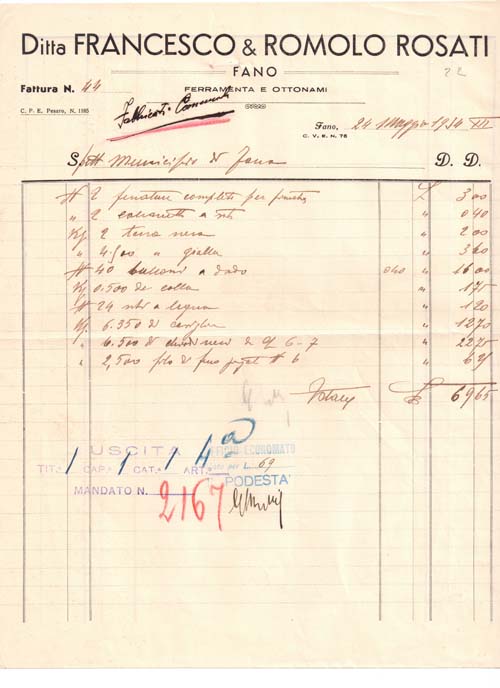 Ditta FRANCESCO & ROMOLO ROSATI
FANO
22
Fattura N. 44
FERRAMENTA E OTTONAMI
C. P. E. Pesaro, N. 1165
Fabbricati Comunali
Fano, 24 Maggio 1934 XII
C. V. E. N. 76
Spett Municipio di Fano D. D.
N 2 complete per £ 3 00
" 2 a " 0 40
Kg 2 terra nera " 2 00
" 4.500 " gialla " 3 60
N 40 bulloni a dado 0.40 " 16 00
Kg 0.500 di colla " 1 75
N 24 viti a legno " 1 20
Kg. 6.350 di " 12 70
" 6.500 di di q 6-7 " 22 75
" 2,500 filo di N 6 " 6 25
Totale £ 69 65
USCITA 4a UFFICIO ECONOMATO
TIT. 1 CAP. 1 CAT. 1 ART. per L. 69
MANDATO N. 2167 PODESTA'